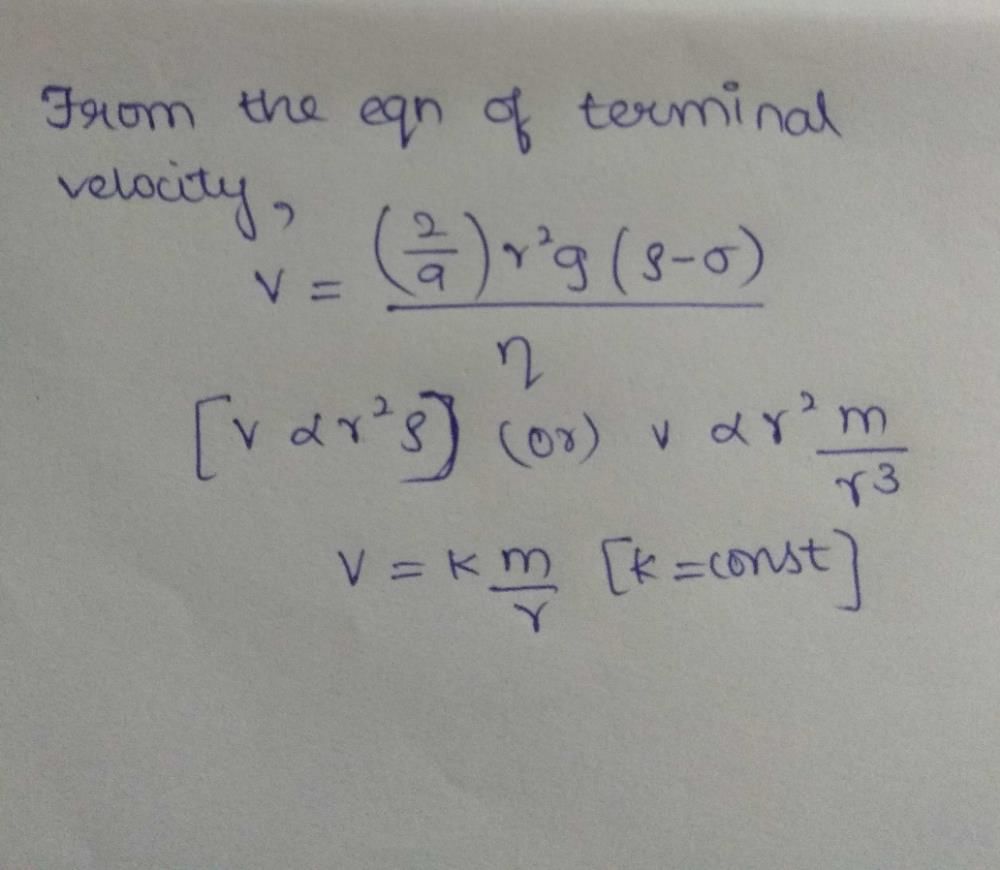 From the eqn of terminal
velocity,
v = (2/9) r²g (ρ-σ) / η
[v α r²ρ] (or) v α r² m/r³
V = K m/r [K = const]